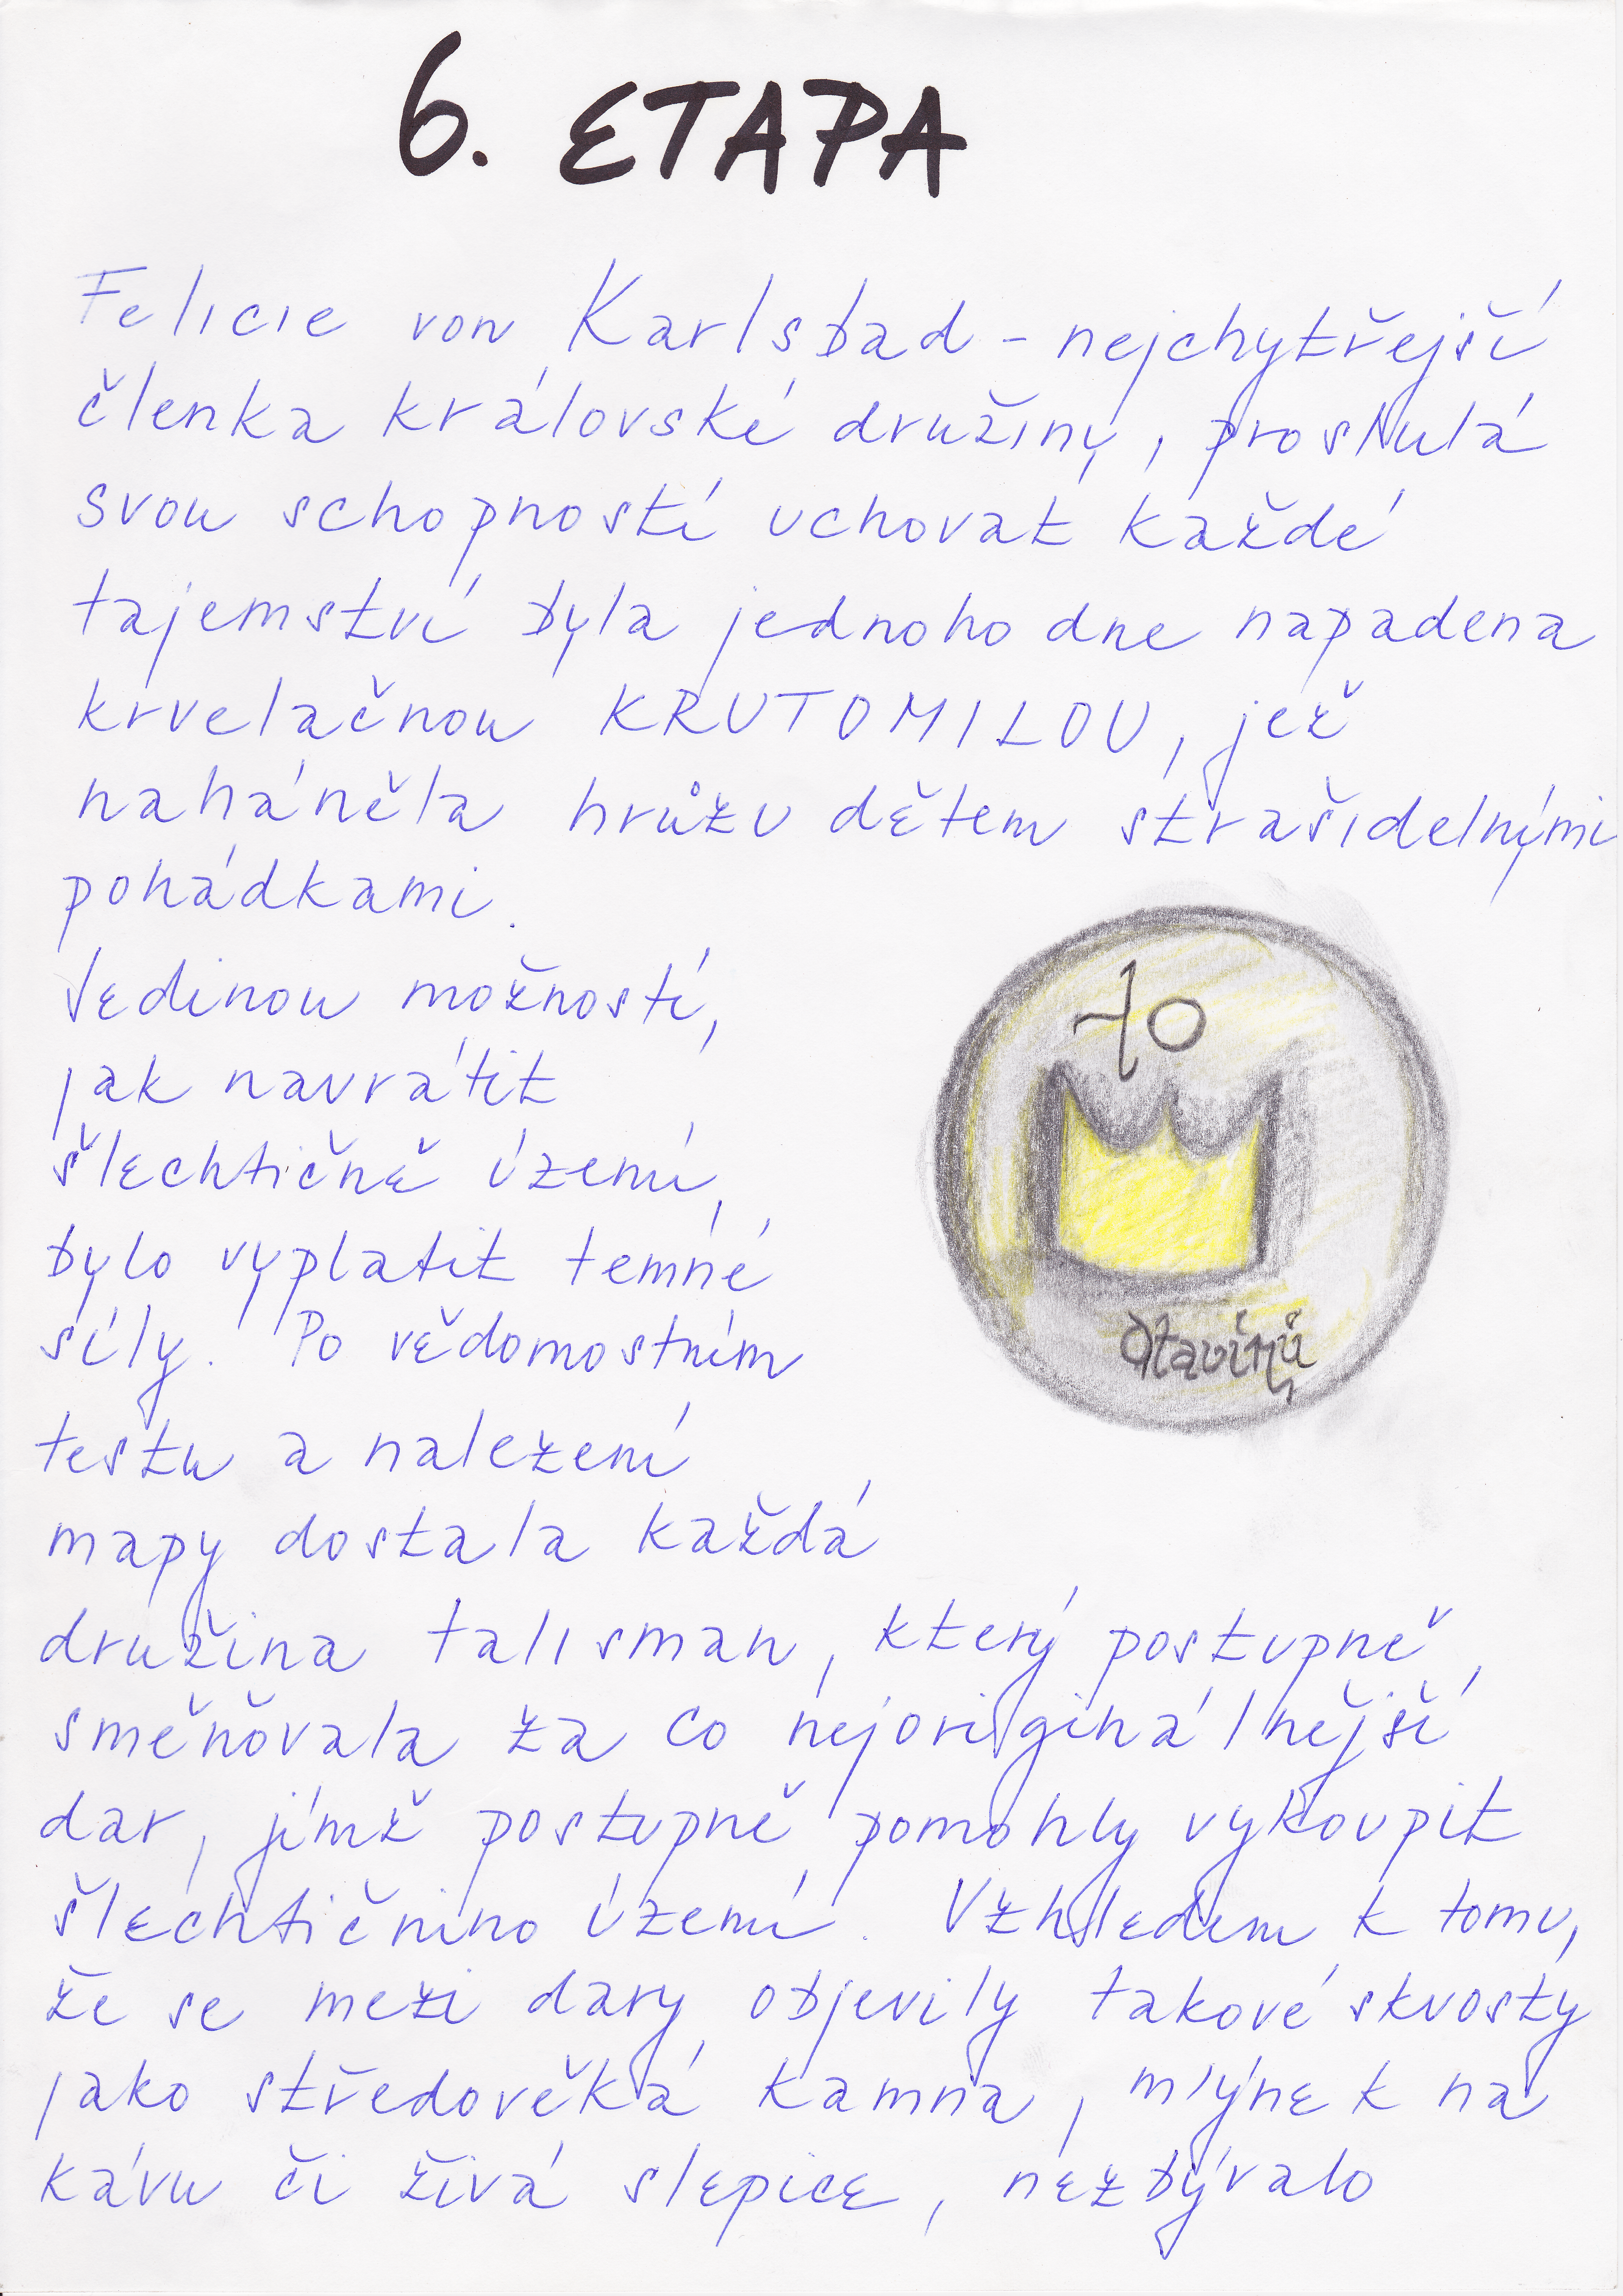 6. ETAPA
Felicie von Karlsbad - nejchytřejší
členka královské družiny, proslulá
svou schopností uchovat každé
tajemství byla jednoho dne napadena
krvelačnou KRUTOMILOU, jež
naháněla hrůzu dětem strašidelnými
pohádkami.
Jedinou možností,
jak navrátit
šlechtičně území,
bylo vyplatit temné
síly. Po vědomostním
testu a nalezení
mapy dostala každá
družina talisman, který postupně
směňovala za co nejoriginálnější
dar, jímž postupně pomohly vykoupit
šlechtičnino území. Vzhledem k tomu,
že se mezi dary objevily takové skvosty
jako středověká kamna, mlýnek na
kávu či živá slepice, nezbývalo
10
Otavínů